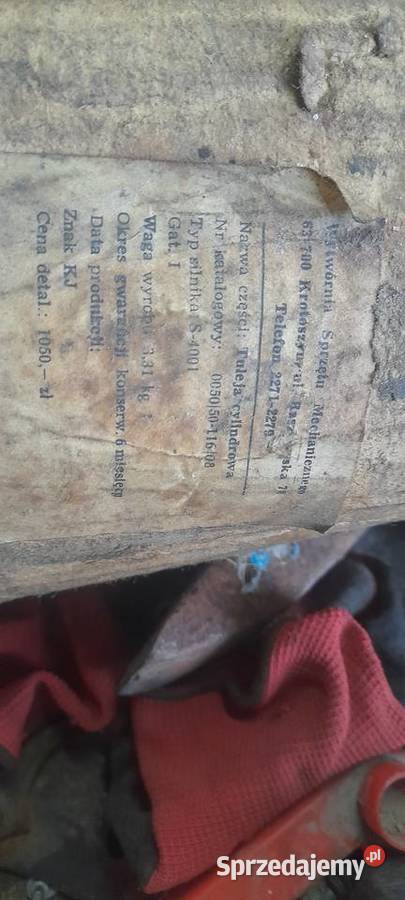 Wytwórnia Sprzętu Mechanicznego
63-700 Krotoszyn, ul.
Telefon 2271-2279
Nazwa części: Tuleja cylindrowa
Nr katalogowy: 0050|50-116|08
Typ silnika S-4001
Gat. I
Waga wyrobu 3,31 kg
Okres gwarancji konserw. 6 miesięcy
Data produkcji:
Znak KJ
Cena detal.: 1050,— zł
Sprzedajemy.pl